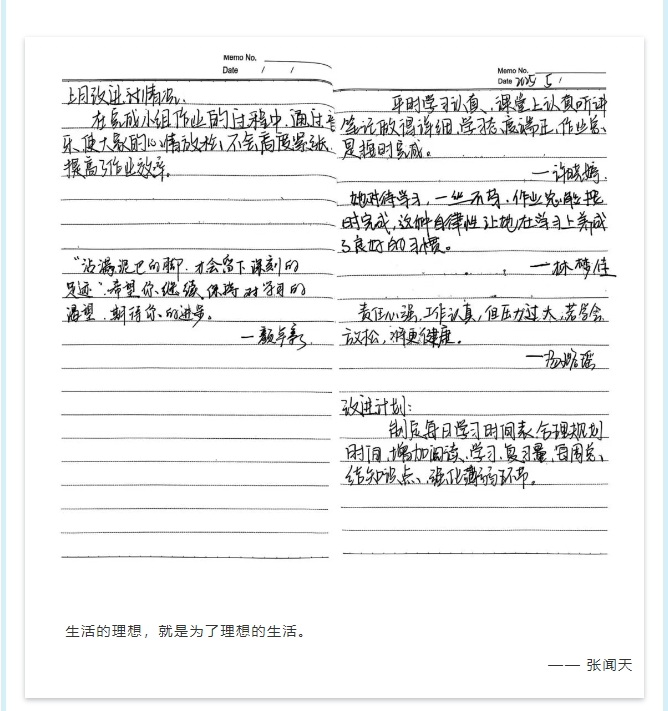 Memo No.
Date / /
上月改进计情况.
在完成小组作业的过程中,通过音
乐,使大家的心情放松,不会高度紧张,
提高了作业效率。
“沾满泥巴的脚,才会留下深刻的
足迹”,希望你继续保持对学习的
渴望,期待你的进步。
—颜卓新
Memo No.
Date 2025 5 /
平时学习认真、课堂上认真听讲
笔记做得详细,学习态度端正,作业总
是按时完成。
—许晓婷
她对待学习,一丝不苟,作业总能按
时完成,这种自律性让她在学习上养成
了良好的习惯。
—林梦佳
责任心强,工作认真,但压力过大,若学会
放松,将更健康。
改进计划:
制定每日学习时间表,合理规划
时间,增加阅读、学习、复习量,每周总
结知识点、强化薄弱环节。
生活的理想,就是为了理想的生活。
—— 张闻天